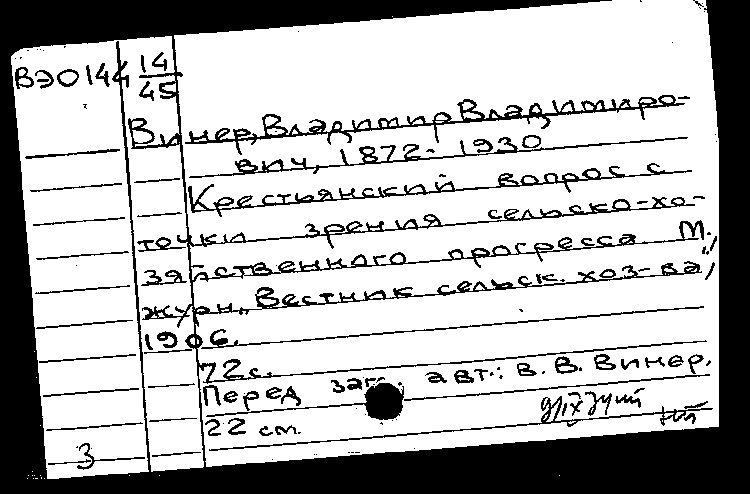 ВЭО144 14/45
Винер, Владимир Владимиро-
вич, 1872- 1930
Крестьянский вопрос с
точки зрения сельско-хо-
зяйственного прогресса М.,
журн. „Вестник сельск. хоз-ва",
1906.
72 с.
Перед заг. авт.: В. В. Винер.
22 см.
3